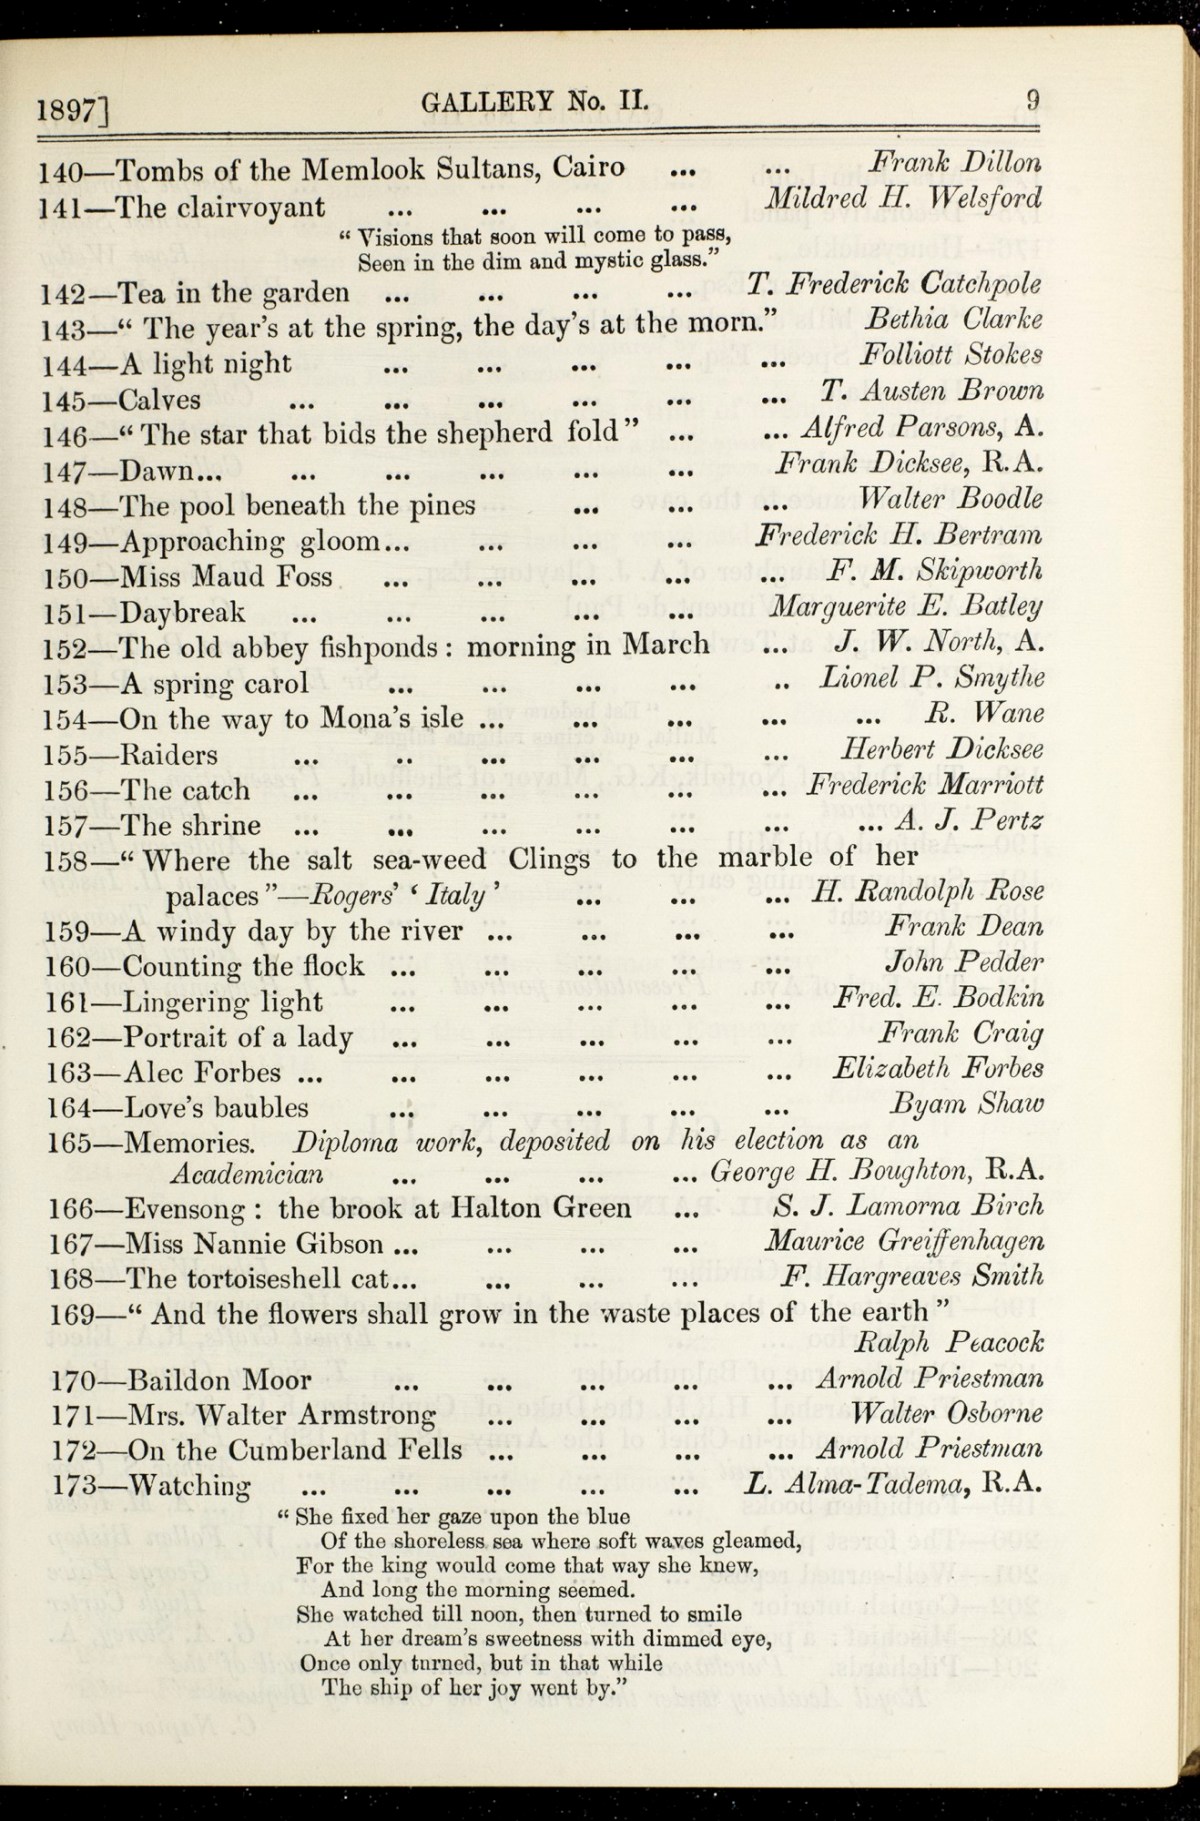 1897] GALLERY No. II. 9
140—Tombs of the Memlook Sultans, Cairo ... ... Frank Dillon
141—The clairvoyant ... ... ... ... Mildred H. Welsford
“ Visions that soon will come to pass,
Seen in the dim and mystic glass.”
142—Tea in the garden ... ... ... ... T. Frederick Catchpole
143—“ The year’s at the spring, the day’s at the morn.” Bethia Clarke
144—A light night ... ... ... ... ... Folliott Stokes
145—Calves ... ... ... ... ... ... T. Austen Brown
146—“ The star that bids the shepherd fold ” ... ... Alfred Parsons, A.
147—Dawn... ... ... ... ... ... Frank Dicksee, R.A.
148—The pool beneath the pines ... ... ... Walter Boodle
149—Approaching gloom... ... ... ... Frederick H. Bertram
150—Miss Maud Foss ... ... ... ... ... F. M. Skipworth
151—Daybreak ... ... ... ... ... Marguerite E. Batley
152—The old abbey fishponds : morning in March ... J. W. North, A.
153—A spring carol ... ... ... ... .. Lionel P. Smythe
154—On the way to Mona’s isle ... ... ... ... ... R. Wane
155—Raiders ... .. ... ... ... ... Herbert Dicksee
156—The catch ... ... ... ... ... ... Frederick Marriott
157—The shrine ... ... ... ... ... ... ... A. J. Pertz
158—“ Where the salt sea-weed Clings to the marble of her
palaces ”—Rogers’ ‘ Italy ’ ... ... ... H. Randolph Rose
159—A windy day by the river ... ... ... ... Frank Dean
160—Counting the flock ... ... ... ... ... John Pedder
161—Lingering light ... ... ... ... ... Fred. E. Bodkin
162—Portrait of a lady ... ... ... ... ... Frank Craig
163—Alec Forbes ... ... ... ... ... ... Elizabeth Forbes
164—Love’s baubles ... ... ... ... ... Byam Shaw
165—Memories. Diploma work, deposited on his election as an
Academician ... ... ... ... George H. Boughton, R.A.
166—Evensong : the brook at Halton Green ... S. J. Lamorna Birch
167—Miss Nannie Gibson ... ... ... ... Maurice Greiffenhagen
168—The tortoiseshell cat... ... ... ... F. Hargreaves Smith
169—“ And the flowers shall grow in the waste places of the earth ”
Ralph Peacock
170—Baildon Moor ... ... ... ... ... Arnold Priestman
171—Mrs. Walter Armstrong ... ... ... ... Walter Osborne
172—On the Cumberland Fells ... ... ... ... Arnold Priestman
173—Watching ... ... ... ... ... L. Alma-Tadema, R.A.
“ She fixed her gaze upon the blue
Of the shoreless sea where soft waves gleamed,
For the king would come that way she knew,
And long the morning seemed.
She watched till noon, then turned to smile
At her dream’s sweetness with dimmed eye,
Once only turned, but in that while
The ship of her joy went by.”